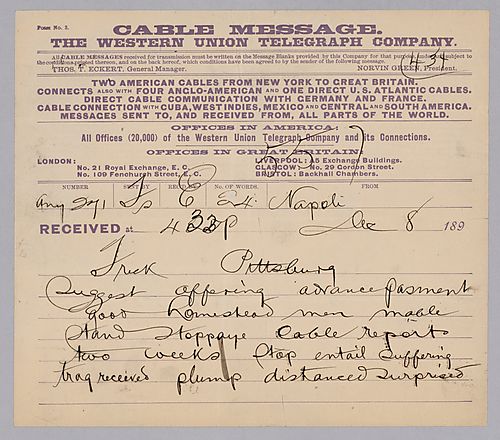 FORM No. 2.
CABLE MESSAGE.
THE WESTERN UNION TELEGRAPH COMPANY.
All CABLE MESSAGES received for transmission must be written on the Message Blanks provided by this Company for that purpose, subject to
the conditions printed thereon, and on the back hereof, which conditions have been agreed to by the sender of the following message.
THOS. T. ECKERT, General Manager. NORVIN GREEN, President.
434
TWO AMERICAN CABLES FROM NEW YORK TO GREAT BRITAIN.
CONNECTS ALSO WITH FOUR ANGLO-AMERICAN AND ONE DIRECT U.S. ATLANTIC CABLES.
DIRECT CABLE COMMUNICATION WITH GERMANY AND FRANCE.
CABLE CONNECTION WITH CUBA, WEST INDIES, MEXICO AND CENTRAL AND SOUTH AMERICA.
MESSAGES SENT TO, AND RECEIVED FROM, ALL PARTS OF THE WORLD.
OFFICES IN AMERICA:
All Offices (20,000) of the Western Union Telegraph Company and its Connections.
OFFICES IN GREAT BRITAIN:
LONDON:
No. 21 Royal Exchange, E. C.
No. 109 Fenchurch Street, E. C.
LIVERPOOL: A5 Exchange Buildings.
GLASGOW: No. 29 Gordon Street.
BRISTOL: Backhall Chambers.
NUMBER SENT BY REC'D BY No. OF WORDS. FROM
Napoli
RECEIVED at 433P Dec 8 189
Frick Pittsburg
Suggest offering advance payment
good homestead men mable
stand stoppage Cable report
two weeks Stop entail suffering
received plump distanced surprised